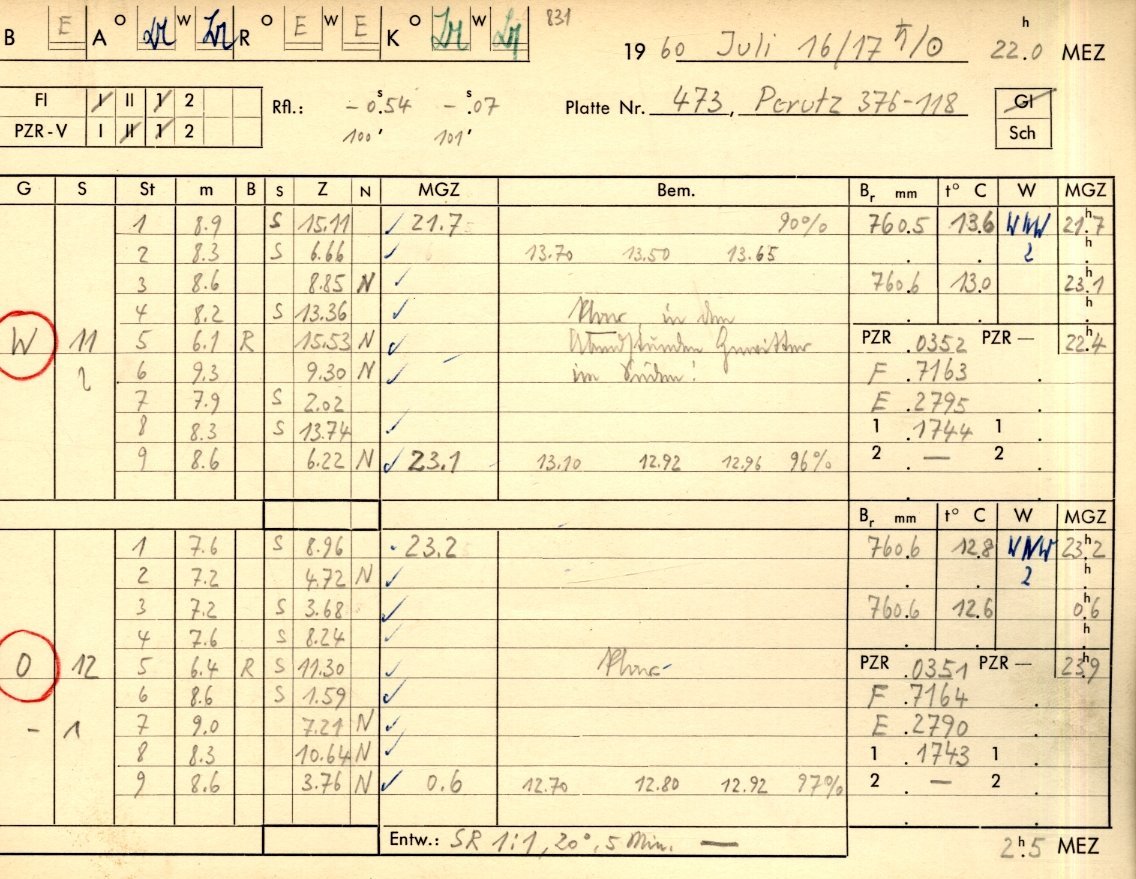 B E A O W R O E W E K O W 831
19 60 Juli 16/17 ♄/☉ 22.0 h MEZ
FI I II 1 2 Rfl.: -0.54 s -.07 s Platte Nr. 473, Perutz 376-118 Gl
PZR-V I II 1 2 100' 101' Sch
G S St m B S Z N MGZ Bem. Br mm t° C W MGZ
1 8.9 S 15.11 ✓ 21.7 90% 760.5 13.6 WNW 21.7 h
2 8.3 S 6.66 13.70 13.50 13.65 2 h
3 8.6 8.85 N ✓ 760.6 13.0 23.1 h
4 8.2 S 13.36 ✓ Klar in den h
W 11 5 6.1 R 15.53 N ✓ Abendstunden Gewitter PZR .0352 PZR — 22.4 h
2 6 9.3 9.30 N ✓ im Süden! F .7163
7 7.9 S 2.02 E .2795
8 8.3 S 13.74 ✓ 1 .1744 1
9 8.6 6.22 N ✓ 23.1 13.10 12.92 12.96 96% 2 — 2
Br mm t° C W MGZ
1 7.6 S 8.96 23.2 760.6 12.8 WNW 23.2 h
2 7.2 4.72 N ✓ 2 h
3 7.2 S 3.68 ✓ 760.6 12.6 0.6 h
4 7.6 S 8.24 ✓ h
O 12 5 6.4 R S 11.30 ✓ Klar PZR .0351 PZR — 23.9 h
6 8.6 S 1.59 ✓ F .7164
- 1 7 9.0 7.21 N ✓ E .2790
8 8.3 10.64 N ✓ 1 .1743 1
9 8.6 3.76 N ✓ 0.6 12.70 12.80 12.92 97% 2 — 2
Entw.: SR 1:1, 20°, 5 Min. — 2.5 h MEZ